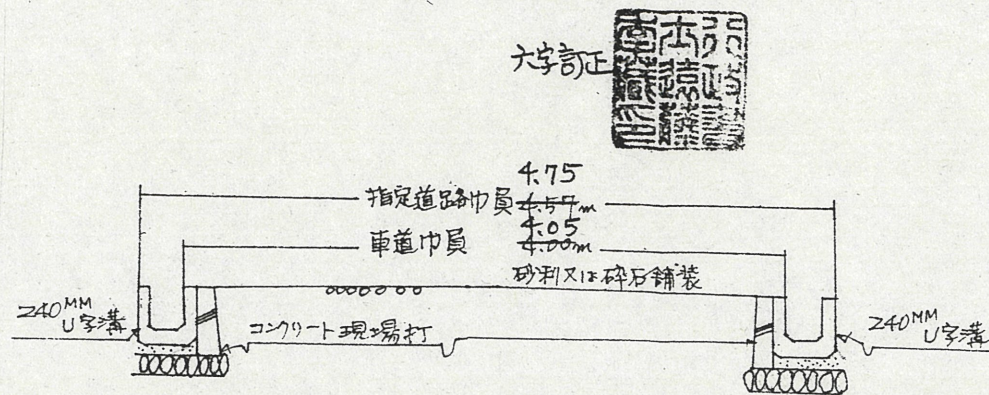 六字訂正
4.75
指定道路巾員 4.57m
4.05
車道巾員 4.00m
砂利又は砕石舗装
240MM
U字溝
コンクリート現場打
240MM
U字溝